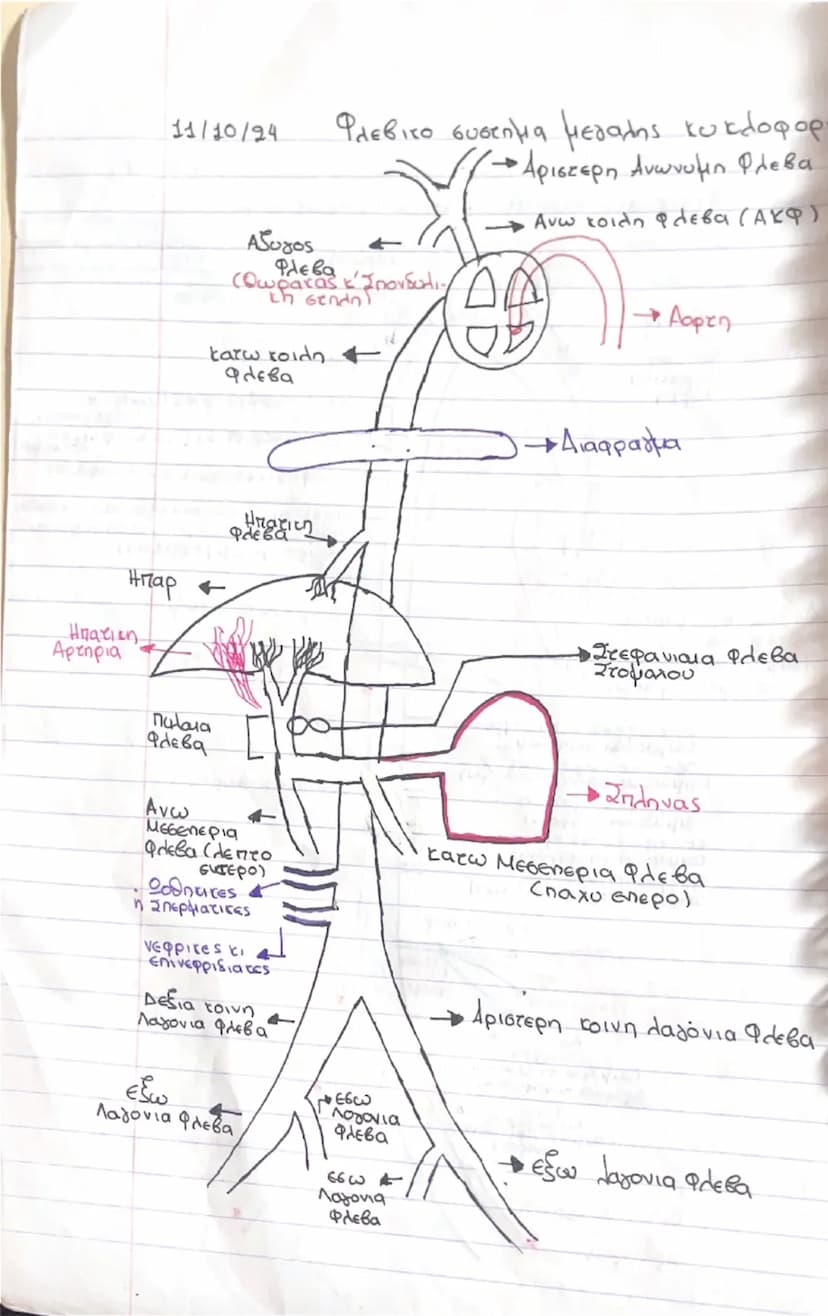 11/10/24 Φλεβικο συστημα μεγαλης κυκλοφορ
Αριστερη Ανωνυμη Φλεβα
Ανω κοιλη Φλεβα (ΑΚΦ)
Αζυγος
Φλεβα
(Θωρακας κ' Σπονδυλι-
κη στηλη)
Αορτη
κατω κοιλη
Φλεβα
Διαφραγμα
Ηπατικη
Φλεβα
Ηπαρ
Ηπατικη
Αρτηρια
Στεφανιαια Φλεβα
Στομαχου
Πυλαια
Φλεβα
Σπληνας
Ανω
Μεσεντερια
Φλεβα (λεπτο
εντερο)
κατω Μεσεντερια Φλεβα
(παχυ εντερο)
Ωοθηκικες
ή Σπερματικες
νεφρικες κι
επινεφριδιακες
Δεξια κοινη
Λαγονια Φλεβα
Αριστερη κοινη λαγόνια Φλεβα
εξω
Λαγονια Φλεβα
εσω
Λαγονια
Φλεβα
εσω
Λαγονια
Φλεβα
εξω λαγονια Φλεβα